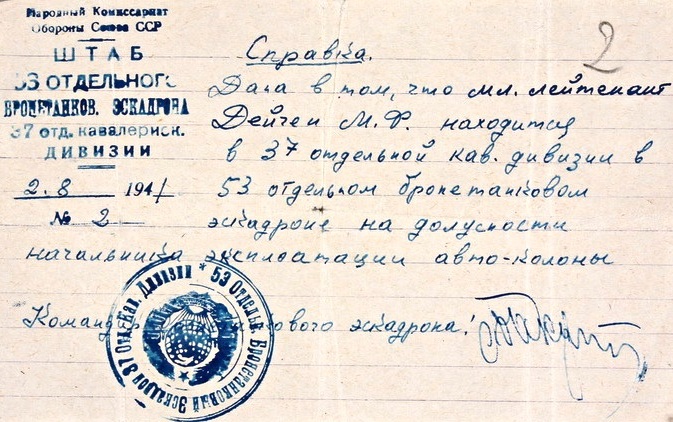 Народный Комиссариат
Обороны Союза ССР
ШТАБ
53 ОТДЕЛЬНОГО
БРОНЕТАНКОВ. ЭСКАДРОНА
37 отд. кавалерийск.
ДИВИЗИИ
2.8 1941
№ 2
2
Справка.
Дана в том, что мл. лейтенант
Дейчен М.Ф. находится
в 37 отдельной кав. дивизии в
53 отдельном бронетанковом
эскадроне на должности
начальника эксплоатации авто-колоны
эскадрона:
53 Отдельн. Бронетанковый Эскадрон 37 Отд. Кав. Дивизии *